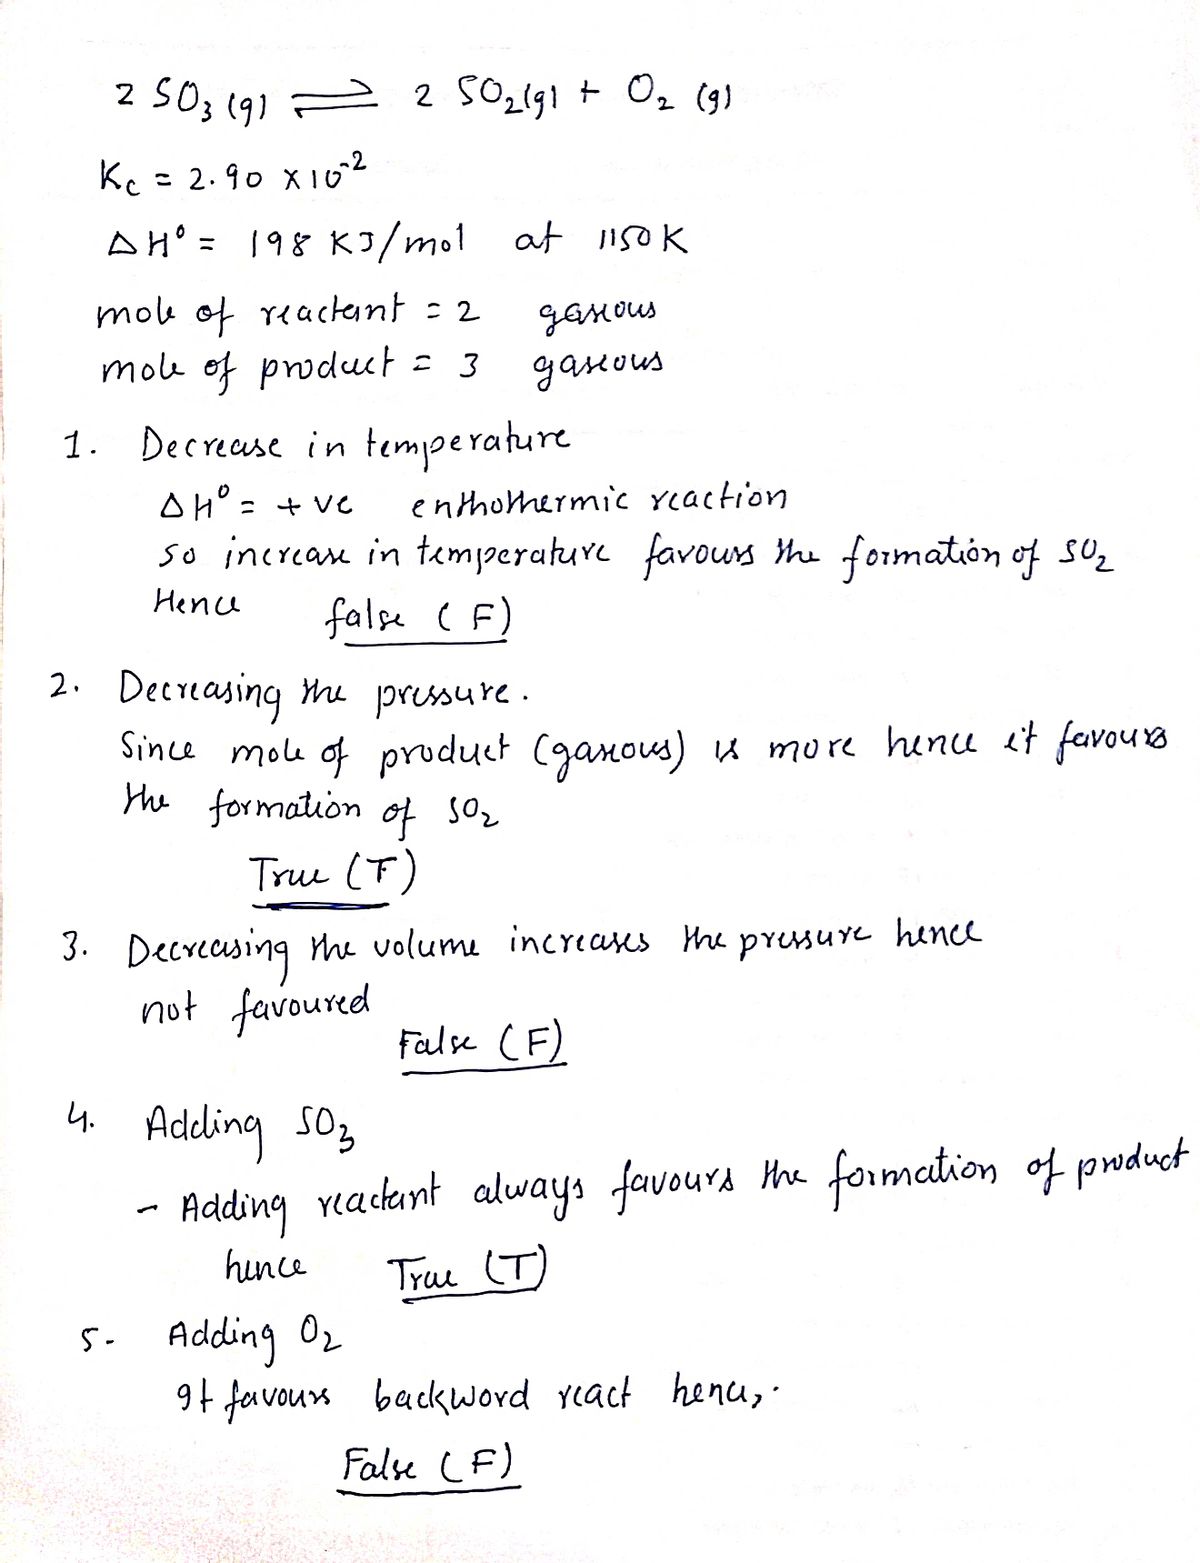 2 SO₃ (g) ⇌ 2 SO₂(g) + O₂ (g)
Kc = 2.90 × 10⁻²
ΔH° = 198 KJ/mol at 1150 K
mole of reactant = 2 gaseous
mole of product = 3 gaseous
1. Decrease in temperature
ΔH° = +ve enthothermic reaction
so increase in temperature favours the formation of SO₂
Hence false (F)
2. Decreasing the pressure.
Since mole of product (gaseous) is more hence it favours
the formation of SO₂
True (T)
3. Decreasing the volume increases the pressure hence
not favoured
False (F)
4. Adding SO₃
- Adding reactant always favours the formation of product
hence True (T)
5- Adding O₂
It favours backword react hence,.
False (F)